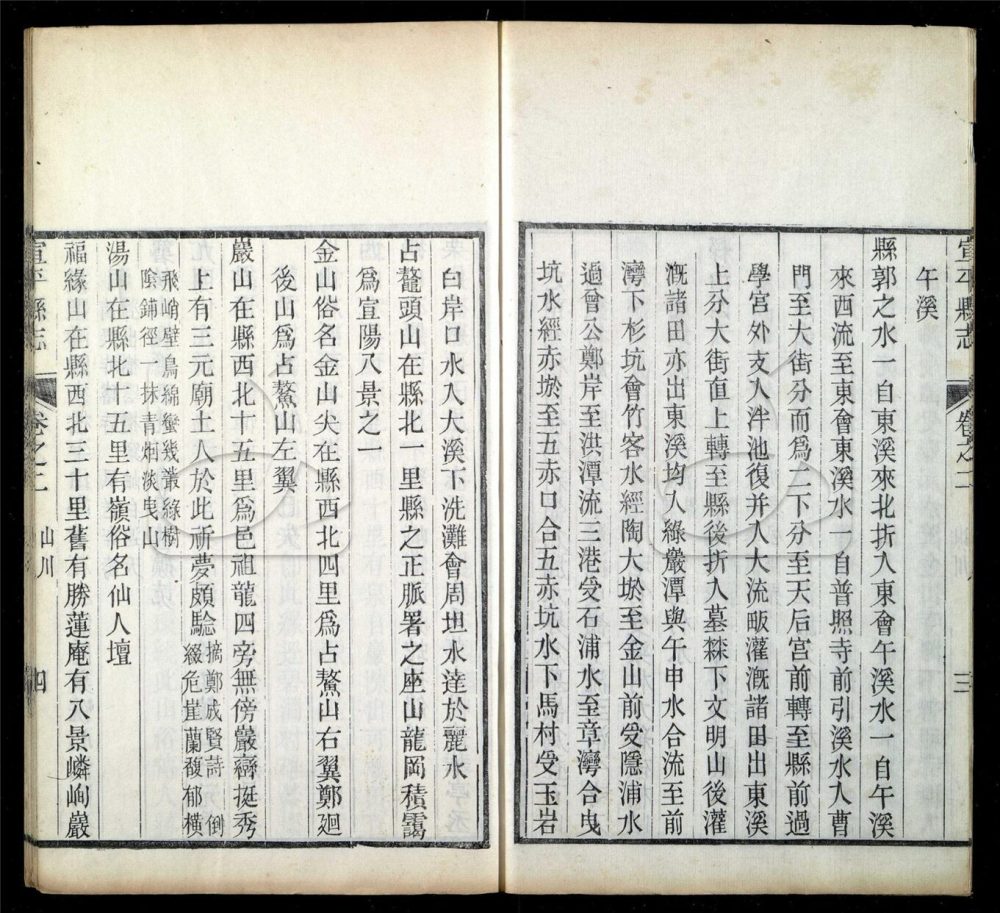 宣平縣志
卷之二
山川
三
午溪
縣郭之水一自東溪來北折入東會午溪水一自午溪
來西流至東會東溪水一自普照寺前引溪水入曹
門至大街分而爲二下分至天后宮前轉至縣前過
學宮外支入泮池復并入大流畈灌溉諸田出東溪
上分大街直上轉至縣後折入墓森下文明山後灌
溉諸田亦出東溪均入綠巖潭與午申水合流至前
灣下杉坑會竹客水經陶大埁至金山前受隱浦水
過曾公鄭岸至洪潭流三港受石浦水至章灣合曳
坑水經赤埁至五赤口合五赤坑水下馬村受玉岩
臼岸口水入大溪下洗灘會周坦水達於麗水
占鼇頭山在縣北一里縣之正脈署之座山龍岡積靄
爲宣陽八景之一
金山俗名金山尖在縣西北四里爲占鰲山右翼鄭廻
後山爲占鰲山左翼
巖山在縣西北十五里爲邑祖龍四旁無傍巖巒挺秀
上有三元廟土人於此祈夢頗驗摘鄭成賢詩倒
綴危崖蘭馥郁橫
飛峭壁鳥綿蠻幾叢綠樹
陰鋪徑一抹青烟淡曳山
湯山在縣北十五里有嶺俗名仙人壇
福緣山在縣西北三十里舊有勝蓮庵有八景嶙峋巖
宣平縣志
卷之二
山川
四